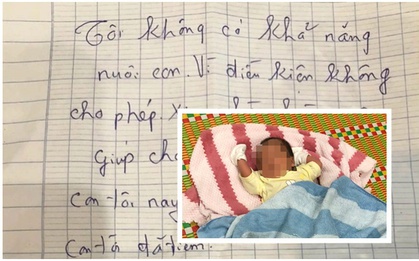 Tôi không có khả năng
nuôi con. Vì điều kiện không
cho phép.
giúp
con tôi nay
con tôi đã tiêm.